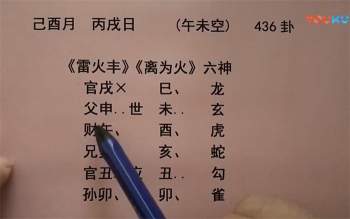 己酉月 丙戌日 (午未空) 436 卦 YOUKU
《雷火丰》《离为火》六神
官戌× 巳、 龙
父申‥世 未‥ 玄
财午、 酉、 虎
兄 亥、 蛇
官丑 应 丑‥ 勾
孙卯、 卯、 雀